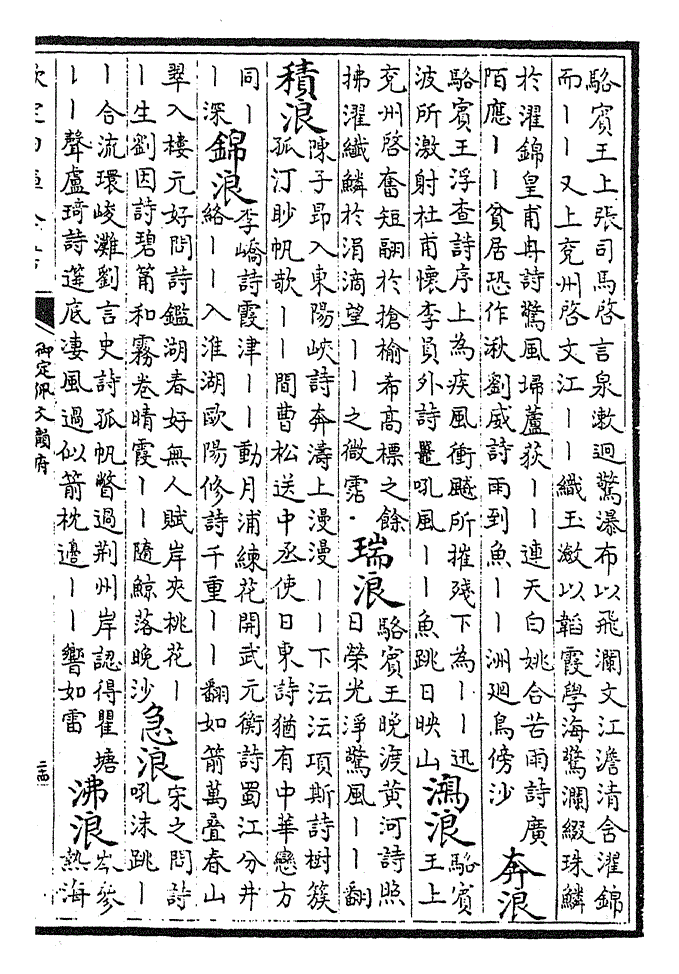 駱賓王上張司馬啓言泉漱迥驚瀑布以飛瀾文江澹清舍濯錦
而〡〡又上兖州啓文江〡〡織玉潋以韜霞學海驚瀾綴珠鱗
於濯錦皇甫冉詩驚風埽蘆荻〡〡連天白姚合苦雨詩廣
陌應〡〡貧居恐作湫劉威詩雨到魚〡〡洲廻鳥傍沙
奔浪
駱賓王浮查詩序上為疾風衝飈所摧殘下為〡〡迅
波所激射杜甫懷李員外詩鼉吼風〡〡魚跳日映山
鴻浪
駱賓
王上
兖州啓奮短翮於搶榆希高標之餘
拂濯纖鱗於涓滴望〡〡之微霑
瑞浪
駱賓王晚渡黄河詩照
日榮光淨驚風〡〡翻
積浪
陳子昂入東陽峽詩奔濤上漫漫〡〡下沄沄項斯詩樹簇
孤汀眇帆欹〡〡間曹松送中丞使日東詩猶有中華戀方
同〡
〡深
錦浪
李嶠詩霞津〡〡動月浦練花開武元衡詩蜀江分井
絡〡〡入淮湖歐陽修詩千重〡〡翻如箭萬叠春山
翠入樓元好問詩鑑湖春好無人賦岸夾桃花〡
〡生劉因詩碧筩和霧卷晴霞〡〡隨鯨落晚沙
急浪
宋之問詩
吼沫跳〡
〡合流環峻灘劉言史詩孤帆瞥過荆州岸認得瞿塘
〡〡聲盧琦詩蓬底凄風過似箭枕邊〡〡響如雷
沸浪
岑參
熱海
御定佩文韻府